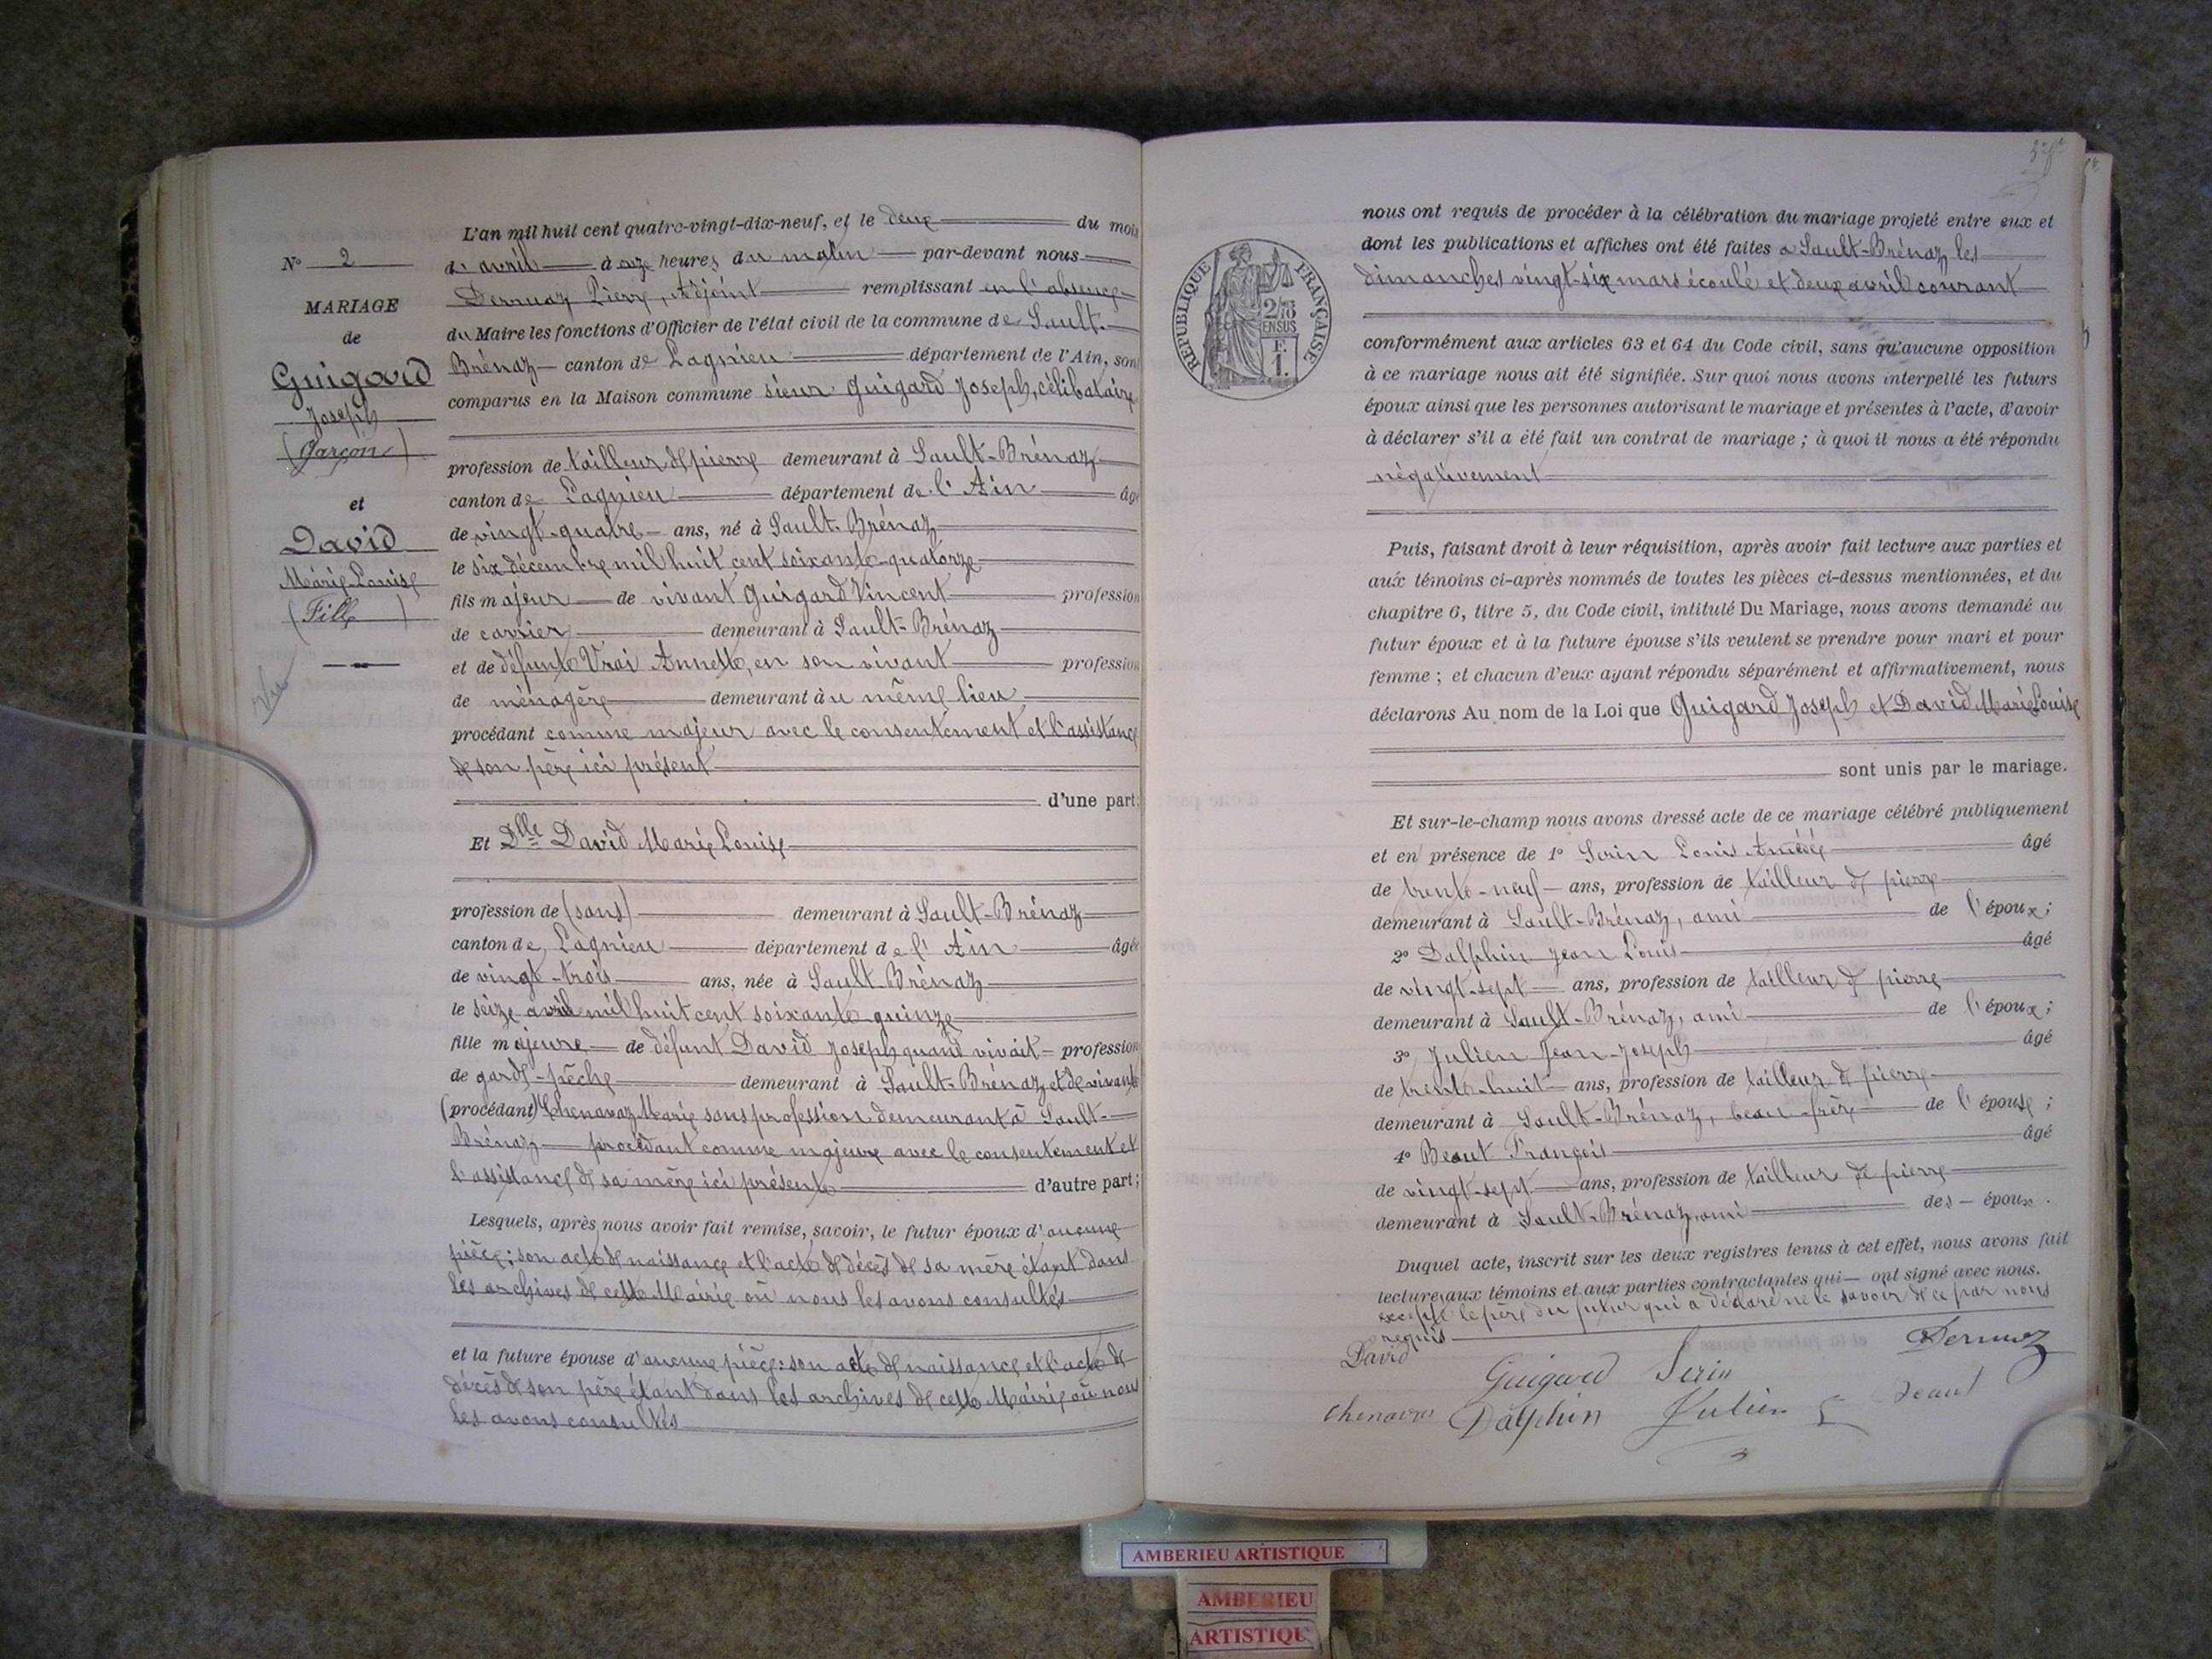 N° 2
MARIAGE
de
Guigard
Joseph
(Garçon)
et
David
Marie Louise
(Fille)
Vu
L'an mil huit cent quatre-vingt-dix-neuf, et le deux du mois
d'avril à onze heures du matin par-devant nous
Dernuaz Pierre, Adjoint remplissant en l'absence
du Maire les fonctions d'Officier de l'état civil de la commune de Sault-
Brénaz canton de Lagnieu département de l'Ain, sont
comparus en la Maison commune sieur Guigard Joseph, célibataire
profession de tailleur de pierre demeurant à Sault-Brénaz
canton de Lagnieu département de l'Ain âgé
de vingt-quatre ans, né à Sault-Brénaz
le six décembre mil huit cent soixante-quatorze
fils majeur de vivant Guigard Vincent profession
de carrier demeurant à Sault-Brénaz
et de défunte Vrai Annette, en son vivant profession
de ménagère demeurant au même lieu
procédant comme majeur avec le consentement et l'assistance
de son père ici présent
d'une part:
Et Dlle David Marie Louise
profession de (sans) demeurant à Sault-Brénaz
canton de Lagnieu département de l'Ain âgée
de vingt-trois ans, née à Sault-Brénaz
le seize avril mil huit cent soixante quinze
fille majeure de défunt David Joseph quand vivait profession
de garde-pêche demeurant à Sault-Brénaz et de vivante
(procédant) Chenavaz Marie sans profession demeurant à Sault-
Brénaz procédant comme majeure avec le consentement et
l'assistance de sa mère ici présente d'autre part;
Lesquels, après nous avoir fait remise, savoir, le futur époux d'aucune
pièce; son acte de naissance et l'acte de décès de sa mère étant dans
les archives de cette Mairie où nous les avons consultés
et la future épouse d'aucune pièce: son acte de naissance et l'acte de
décès de son père étant dans les archives de cette Mairie où nous
les avons consultés
REPUBLIQUE FRANÇAISE
2/10
EN SUS
F.
1.
nous ont requis de procéder à la célébration du mariage projeté entre eux et
dont les publications et affiches ont été faites à Sault-Brénaz les
dimanches vingt-six mars écoulé et deux avril courant
conformément aux articles 63 et 64 du Code civil, sans qu'aucune opposition
à ce mariage nous ait été signifiée. Sur quoi nous avons interpellé les futurs
époux ainsi que les personnes autorisant le mariage et présentes à l'acte, d'avoir
à déclarer s'il a été fait un contrat de mariage ; à quoi il nous a été répondu
négativement
Puis, faisant droit à leur réquisition, après avoir fait lecture aux parties et
aux témoins ci-après nommés de toutes les pièces ci-dessus mentionnées, et du
chapitre 6, titre 5, du Code civil, intitulé Du Mariage, nous avons demandé au
futur époux et à la future épouse s'ils veulent se prendre pour mari et pour
femme ; et chacun d'eux ayant répondu séparément et affirmativement, nous
déclarons Au nom de la Loi que Guigard Joseph et David Marie Louise
sont unis par le mariage.
Et sur-le-champ nous avons dressé acte de ce mariage célébré publiquement
et en présence de 1° Serin Louis Amédée âgé
de trente-neuf ans, profession de tailleur de pierre
demeurant à Sault-Brénaz, ami de l'époux;
2° Dalphin Jean Louis âgé
de vingt-sept ans, profession de tailleur de pierre
demeurant à Sault-Brénaz, ami de l'époux;
3° Julien Jean-Joseph âgé
de trente-huit ans, profession de tailleur de pierre
demeurant à Sault-Brénaz, beau-frère de l'épouse ;
4° Beaut François âgé
de vingt-sept ans, profession de tailleur de pierre
demeurant à Sault-Brénaz, ami des époux.
Duquel acte, inscrit sur les deux registres tenus à cet effet, nous avons fait
lecture aux témoins et aux parties contractantes qui ont signé avec nous.
excepté le père du futur qui a déclaré ne le savoir de ce par nous
requis
David Guigard Serin Dernuaz
Chenavaz Dalphin Julien Beaut
AMBERIEU ARTISTIQUE
AMBERIEU
ARTISTIQUE